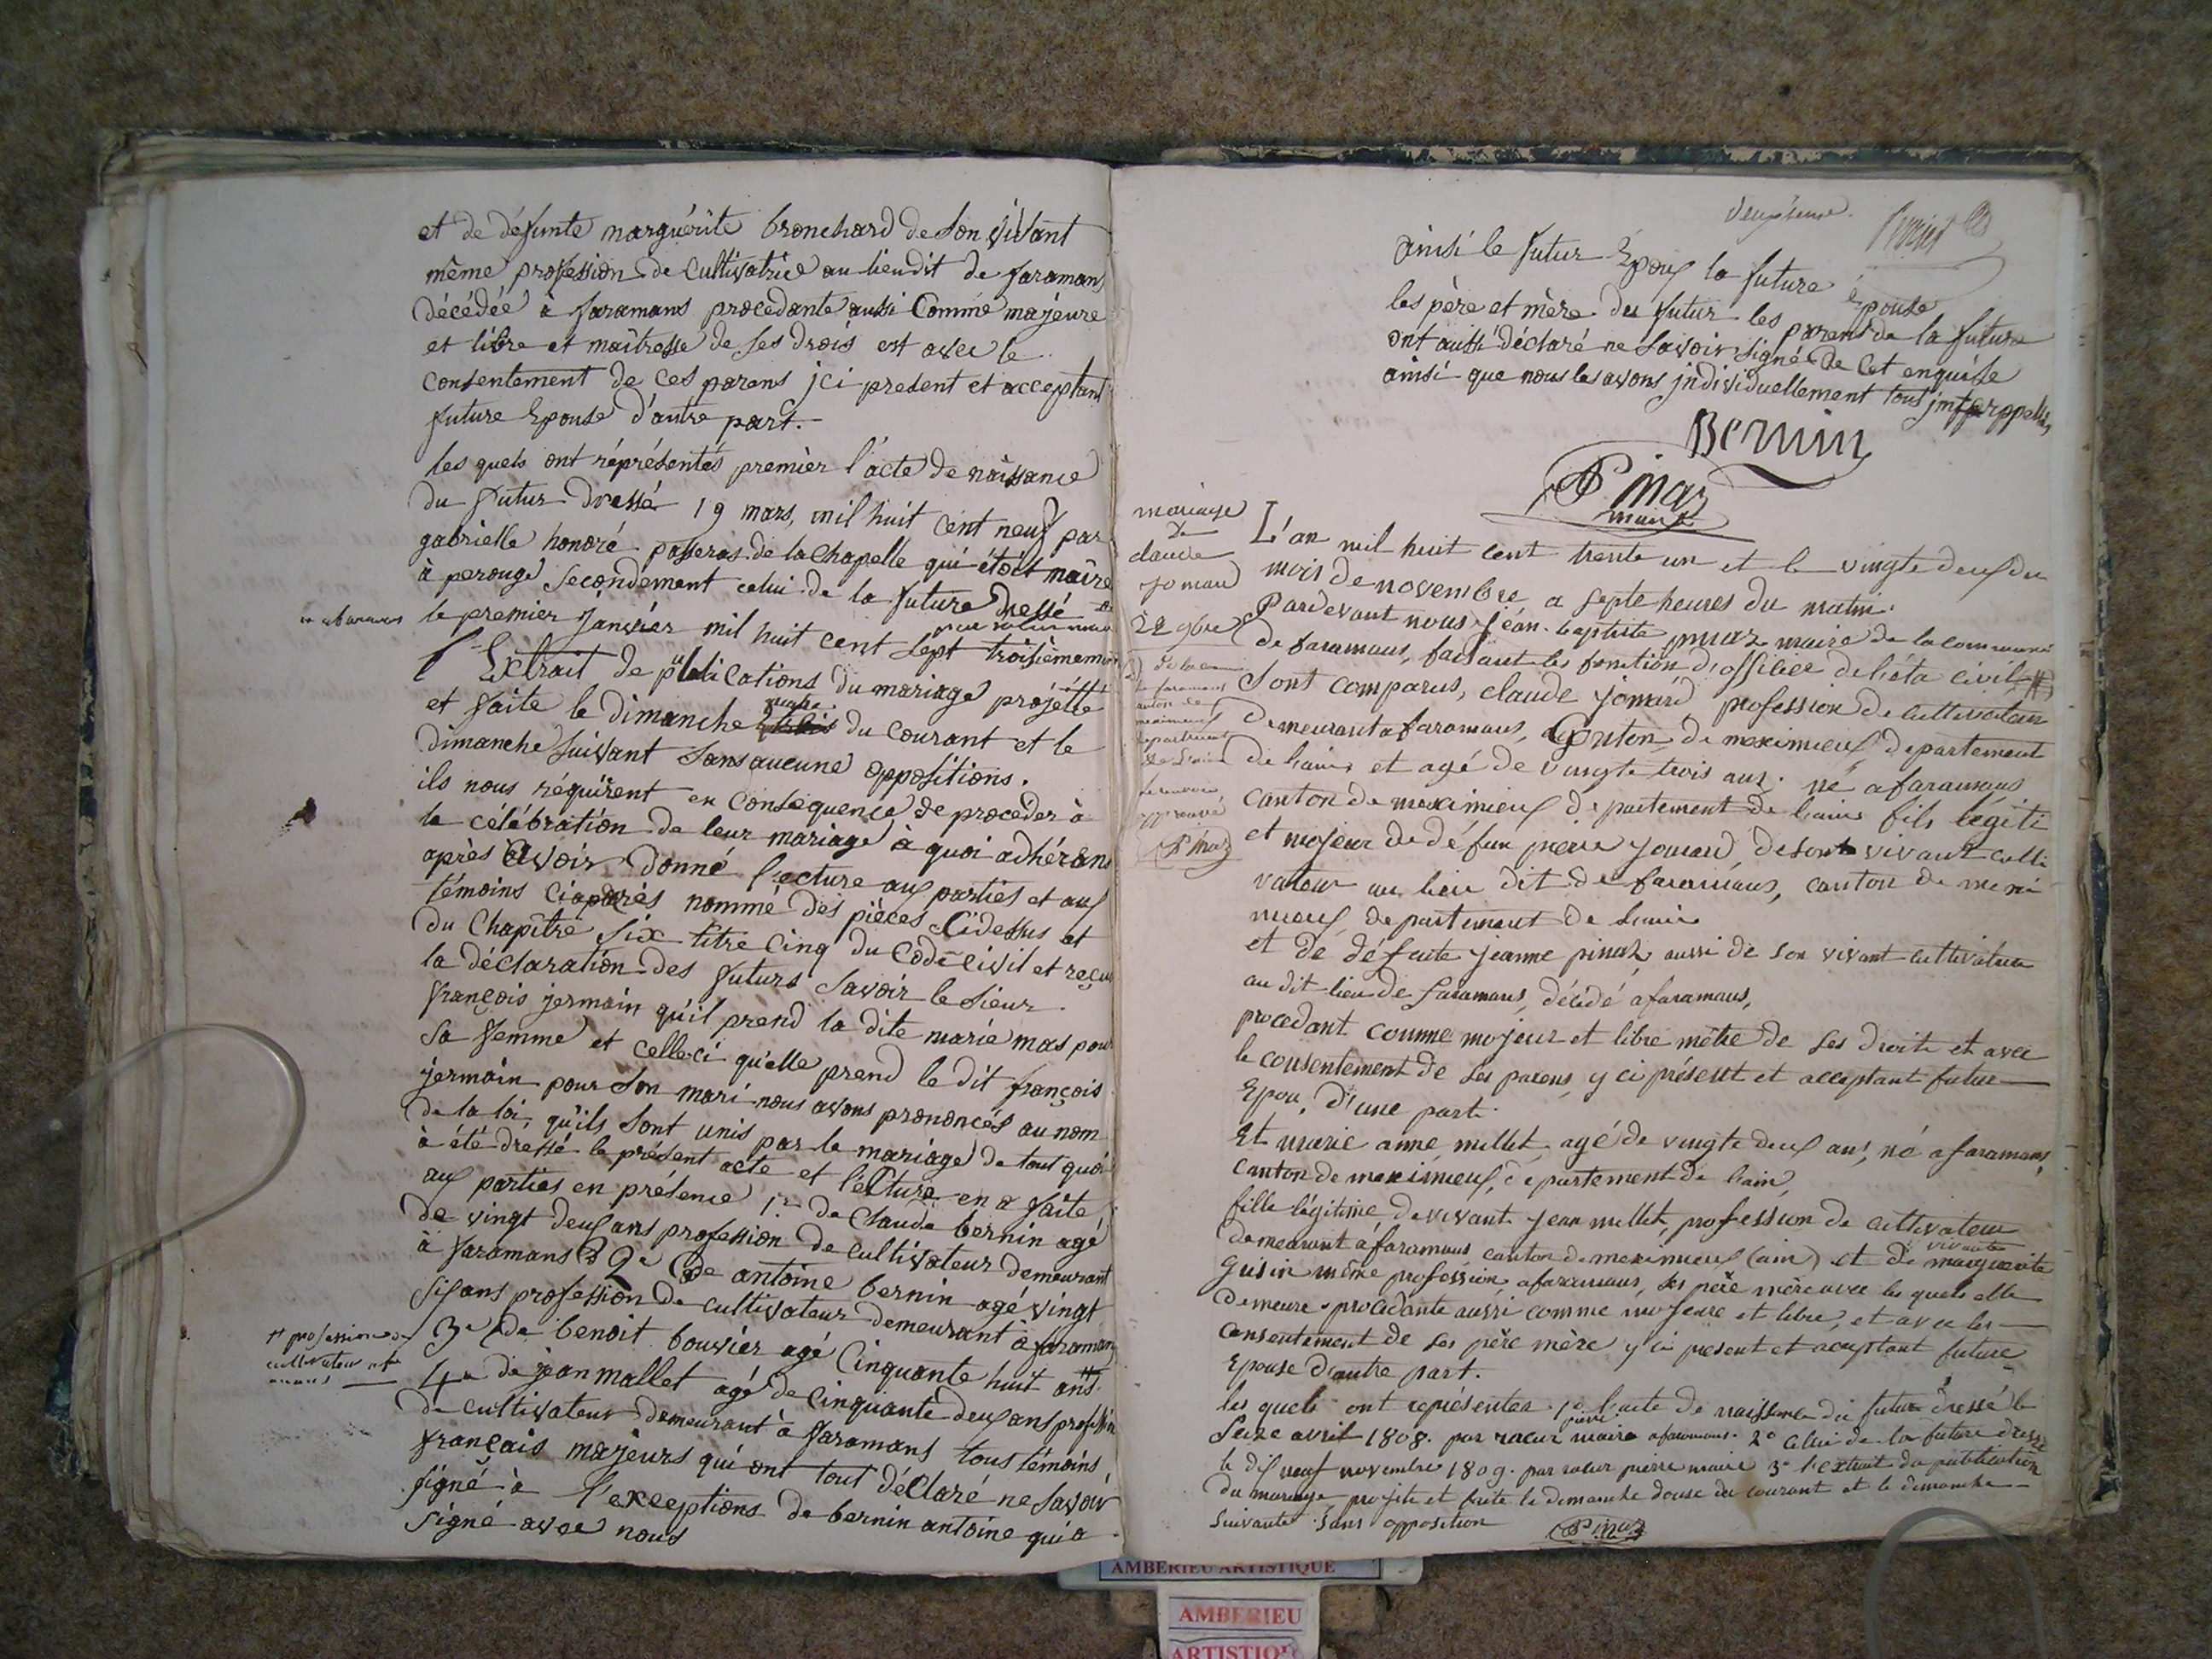 et de défunte marguérite bronchard de son vivant
même profession de cultivatrice au lieu dit de faramans
décédée à faramans procédante aussi Comme majeure
et libre et maîtresse de ses drois est avec le
consentement de ces parans jci present et acceptant
future Epouse d'autre part.
les quels ont réprésentés premièr l'acte de naissance
du futur dressé 19 mars, mil huit cent neuf par
gabrielle honoré passeras de la Chapelle qui étoit maire
à perouge secondement celui de la future dressé
a faramans
le premier Janviér mil huit cent sept troisièmement
l'Extrait de publications du mariage projétté
et faite le dimanche du courant et le
dimanche suivant sans aucune oppositions.
ils nous réquirent en conséquence de procéder à
la célébration de leur mariage à quoi adhérans
après avoir donné lecture aux parties et aux
témoins ciaprès nommé des pièces Cidessus et
du Chapître six titre Cinq du Code civil et reçu
la déclaration des futurs savoir le sieur
françois jermain qu'il prend la dite marie mas pour
sa femme et celle-ci qu'elle prend le dit françois
jermain pour son mari nous avons prononcés au nom
de la loi, qu'ils sont unis par le mariage de tout quoi
à été dressé le présent acte et lécture en a faite
aux parties en présence 1er de Claude bernin agé
de vingt deux ans profession de cultivateur demeurant
à faramans 2e de antoine bernin agé vingt
six ans profession de cultivateur demeurant à faramans
3e de benoit bouvier agé Cinquante huit ans
profession de
cultivateur et
4e de jean mallet agé de Cinquante deux ans profession
de cultivateur demeurant à faramans tous témoins
français majeurs qui ont tout déclaré ne savoir
signé à l'exceptions de bernin antoine qui a
signé avec nous
ainsi le futur Epoux la future épouse
les père et mère du futur les parents de la future
ont aussi déclaré ne savoir signé de cet enquise
ainsi que nous les avons jndividuellement tous jnterppellés
Bernin
P. inaz
maire
mariage
De
claude
jomard
22 9bre
L'an mil huit cent trente un et le vingte deux du
mois de novembre a septe heures du matin.
Pardevant nous jéan-baptiste pinaz maire de la commune
de faramans, faisant les fonction d'officiee de l'éta civil
sont comparus, claude jomard profession de cultivateur
demeurant a faramans, Canton de meximieux departement
de l'ain et agé de vingte trois ans. né a faramans
canton de meximieux departement de l'ain fils légiti
et majeur de défun pierre jomard, de sont vivant culti
vateur au lieu dit de faramans, canton de mexi
mieux departement de l'ain
approuvé
P inaz
et de défunte jeanne pinaz aussi de son vivant cultivatrice
au dit lieu de faramans, décédé a faramans,
procedant comme majeur et libre mètre de ses droits et avec
le consentement de ses parens, y ci présent et acceptant futur
Epou, d'une part.
Et marie anne millet, agé de vingte deux ans, né a faramans,
canton de meximieux, departement de l'ain,
fille légitime de vivant jean millet, profession de cultivateur
demeurant a faramans canton de meximieux (ain) et de vivante marguerite
gusin même profession, a faramans, ses père mère avec les quels elle
demeure procédante aussi comme majeure et libre, et avec les
consentement de ses père mère y ci present et acceptant future
Epouse d'autre part.
les quels ont représentés 1o l'acte de naissance du futur dressé le
seize avril 1808. par racur pierre maire a faramans. 2o celui de la future dressé
le dix neuf novembre 1809. par racur pierre maire 3o l'extrait de publication
du mariage projeté et faite le dimanche douse du courant et le dimanche
suivante sans opposition
P inaz
AMBERIEU ARTISTIQUE
AMBERIEU
ARTISTIQUE